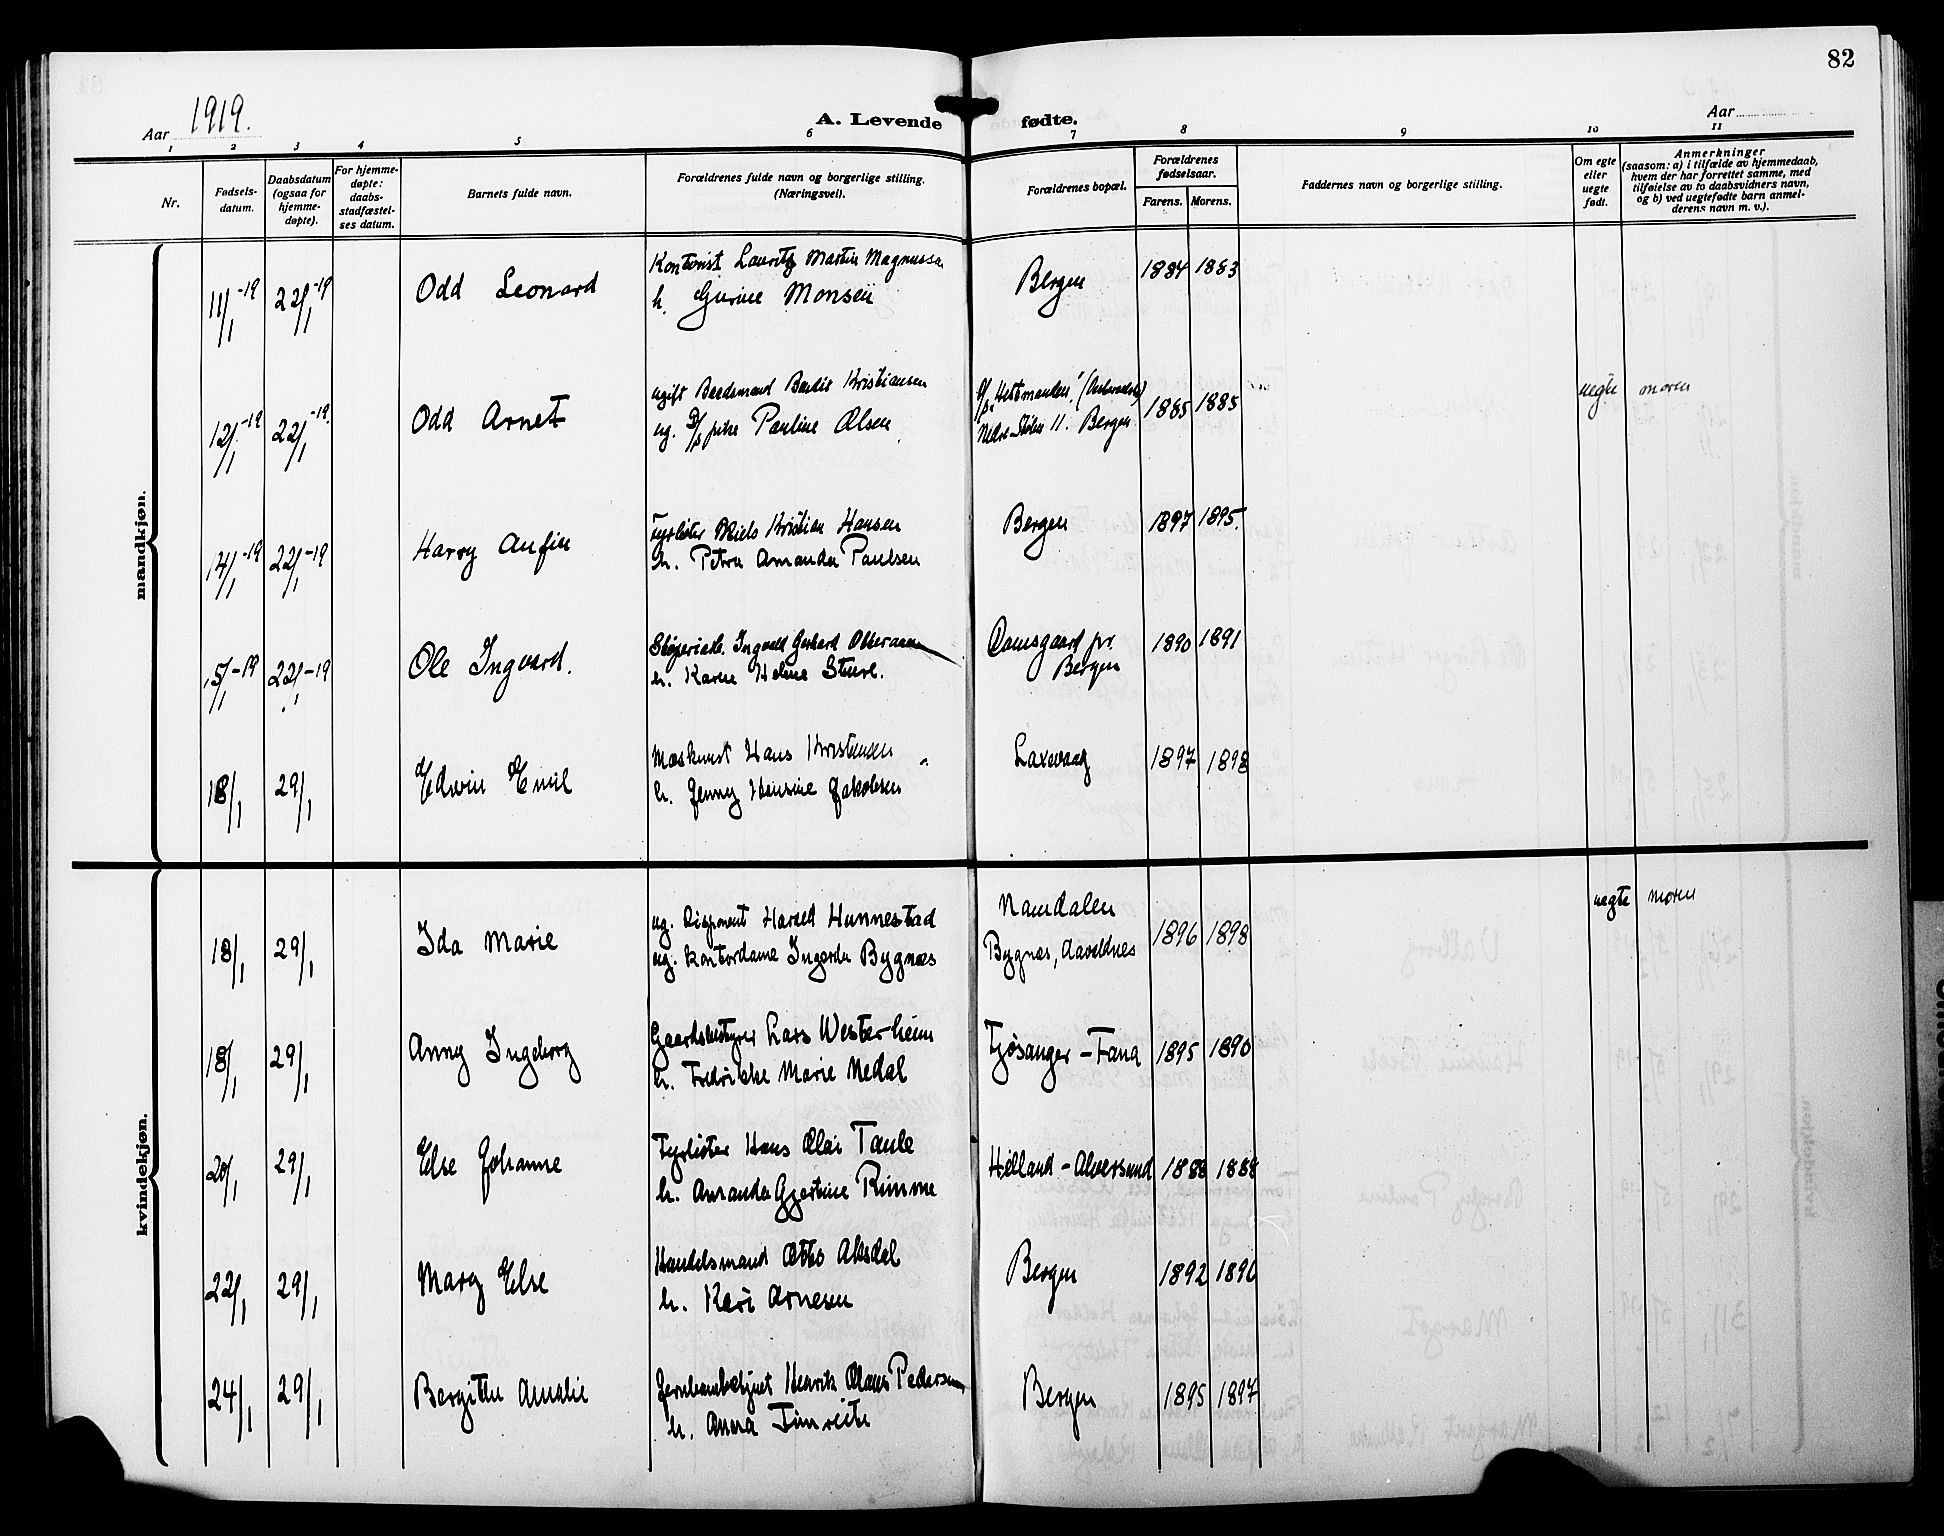 82
Aar 1919.
A. Levende fødte.
Aar
1 2 3 4 5 6 7 8 9 10 11
Nr.
Fødsels-
datum.
Daabsdatum
(ogsaa for
hjemme-
døpte).
For hjemme-
døpte:
daabs-
stadfæstel-
ses datum.
Barnets fulde navn.
Forældrenes fulde navn og borgerlige stilling.
(Næringsvei).
Forældrenes bopæl.
Forældrenes
fødselsaar.
Farens. Morens.
Faddernes navn og borgerlige stilling.
Om egte
eller
uegte
født.
Anmerkninger
(saasom: a) i tilfælde av hjemmedaab,
hvem der har forrettet samme, med
tilføielse av to daabsvidners navn,
og b) ved uegtefødte barn anmel-
derens navn m. v.).
mandkjøn.
Kontorist Lauritz Martin Magnussen
11/1 -19 22/1 -19 Odd Leonard h. Gurine Monsen Bergen 1884 1883
ugift Kristiansen "Hestmanden"
12/1 -19 22/1 -19. Odd Arnet ug. pike Pauline Olsen Nedre-Stølen 11. Bergen 1885 1885 uegte moren
Fyrbøter Niels Kristian Hansen
14/1 -19 22/1 -19 Harry Anfin h. Petra Amanda Paulsen Bergen 1897 1895.
Ingvald Gerhard
5/1 -19 22/1 -19 Ole Ingvard. h. Karen Helene Damsgaard pr. Bergen 1890 1891
Maskinist Hans Kristensen
18/1 29/1 Edwin Emil h. Jenny Hansine Jakobsen Laxevaag 1897 1898
kvindekjøn.
ug. Disponent Harald Hunnestad Namdalen
18/1 29/1 Ida Marie ug. Kontordame Ingerda Bygnæs Bygnæs, Avaldsnes 1896 1898 uegte moren
Gaardsbestyrer Lars Westerheim
18/1 29/1 Anny Ingeborg h. Fredrikke Marie Nedal Fjøsanger - Fana 1895 1890
Fyrbøter Hans Olai Taule
20/1 29/1 Else Johanne h. Amanda Gjertine Rimme Helland - Alversund 1888 1888
Handelsmand Otto Aksdal
22/1 29/1 Mary Else h. Kari Arnesen Bergen 1892 1890
Jernbanebetjent Henrik Olaus Pedersen
24/1 29/1 Bergitte Amalie h. Anna Timreite Bergen 1895 1897